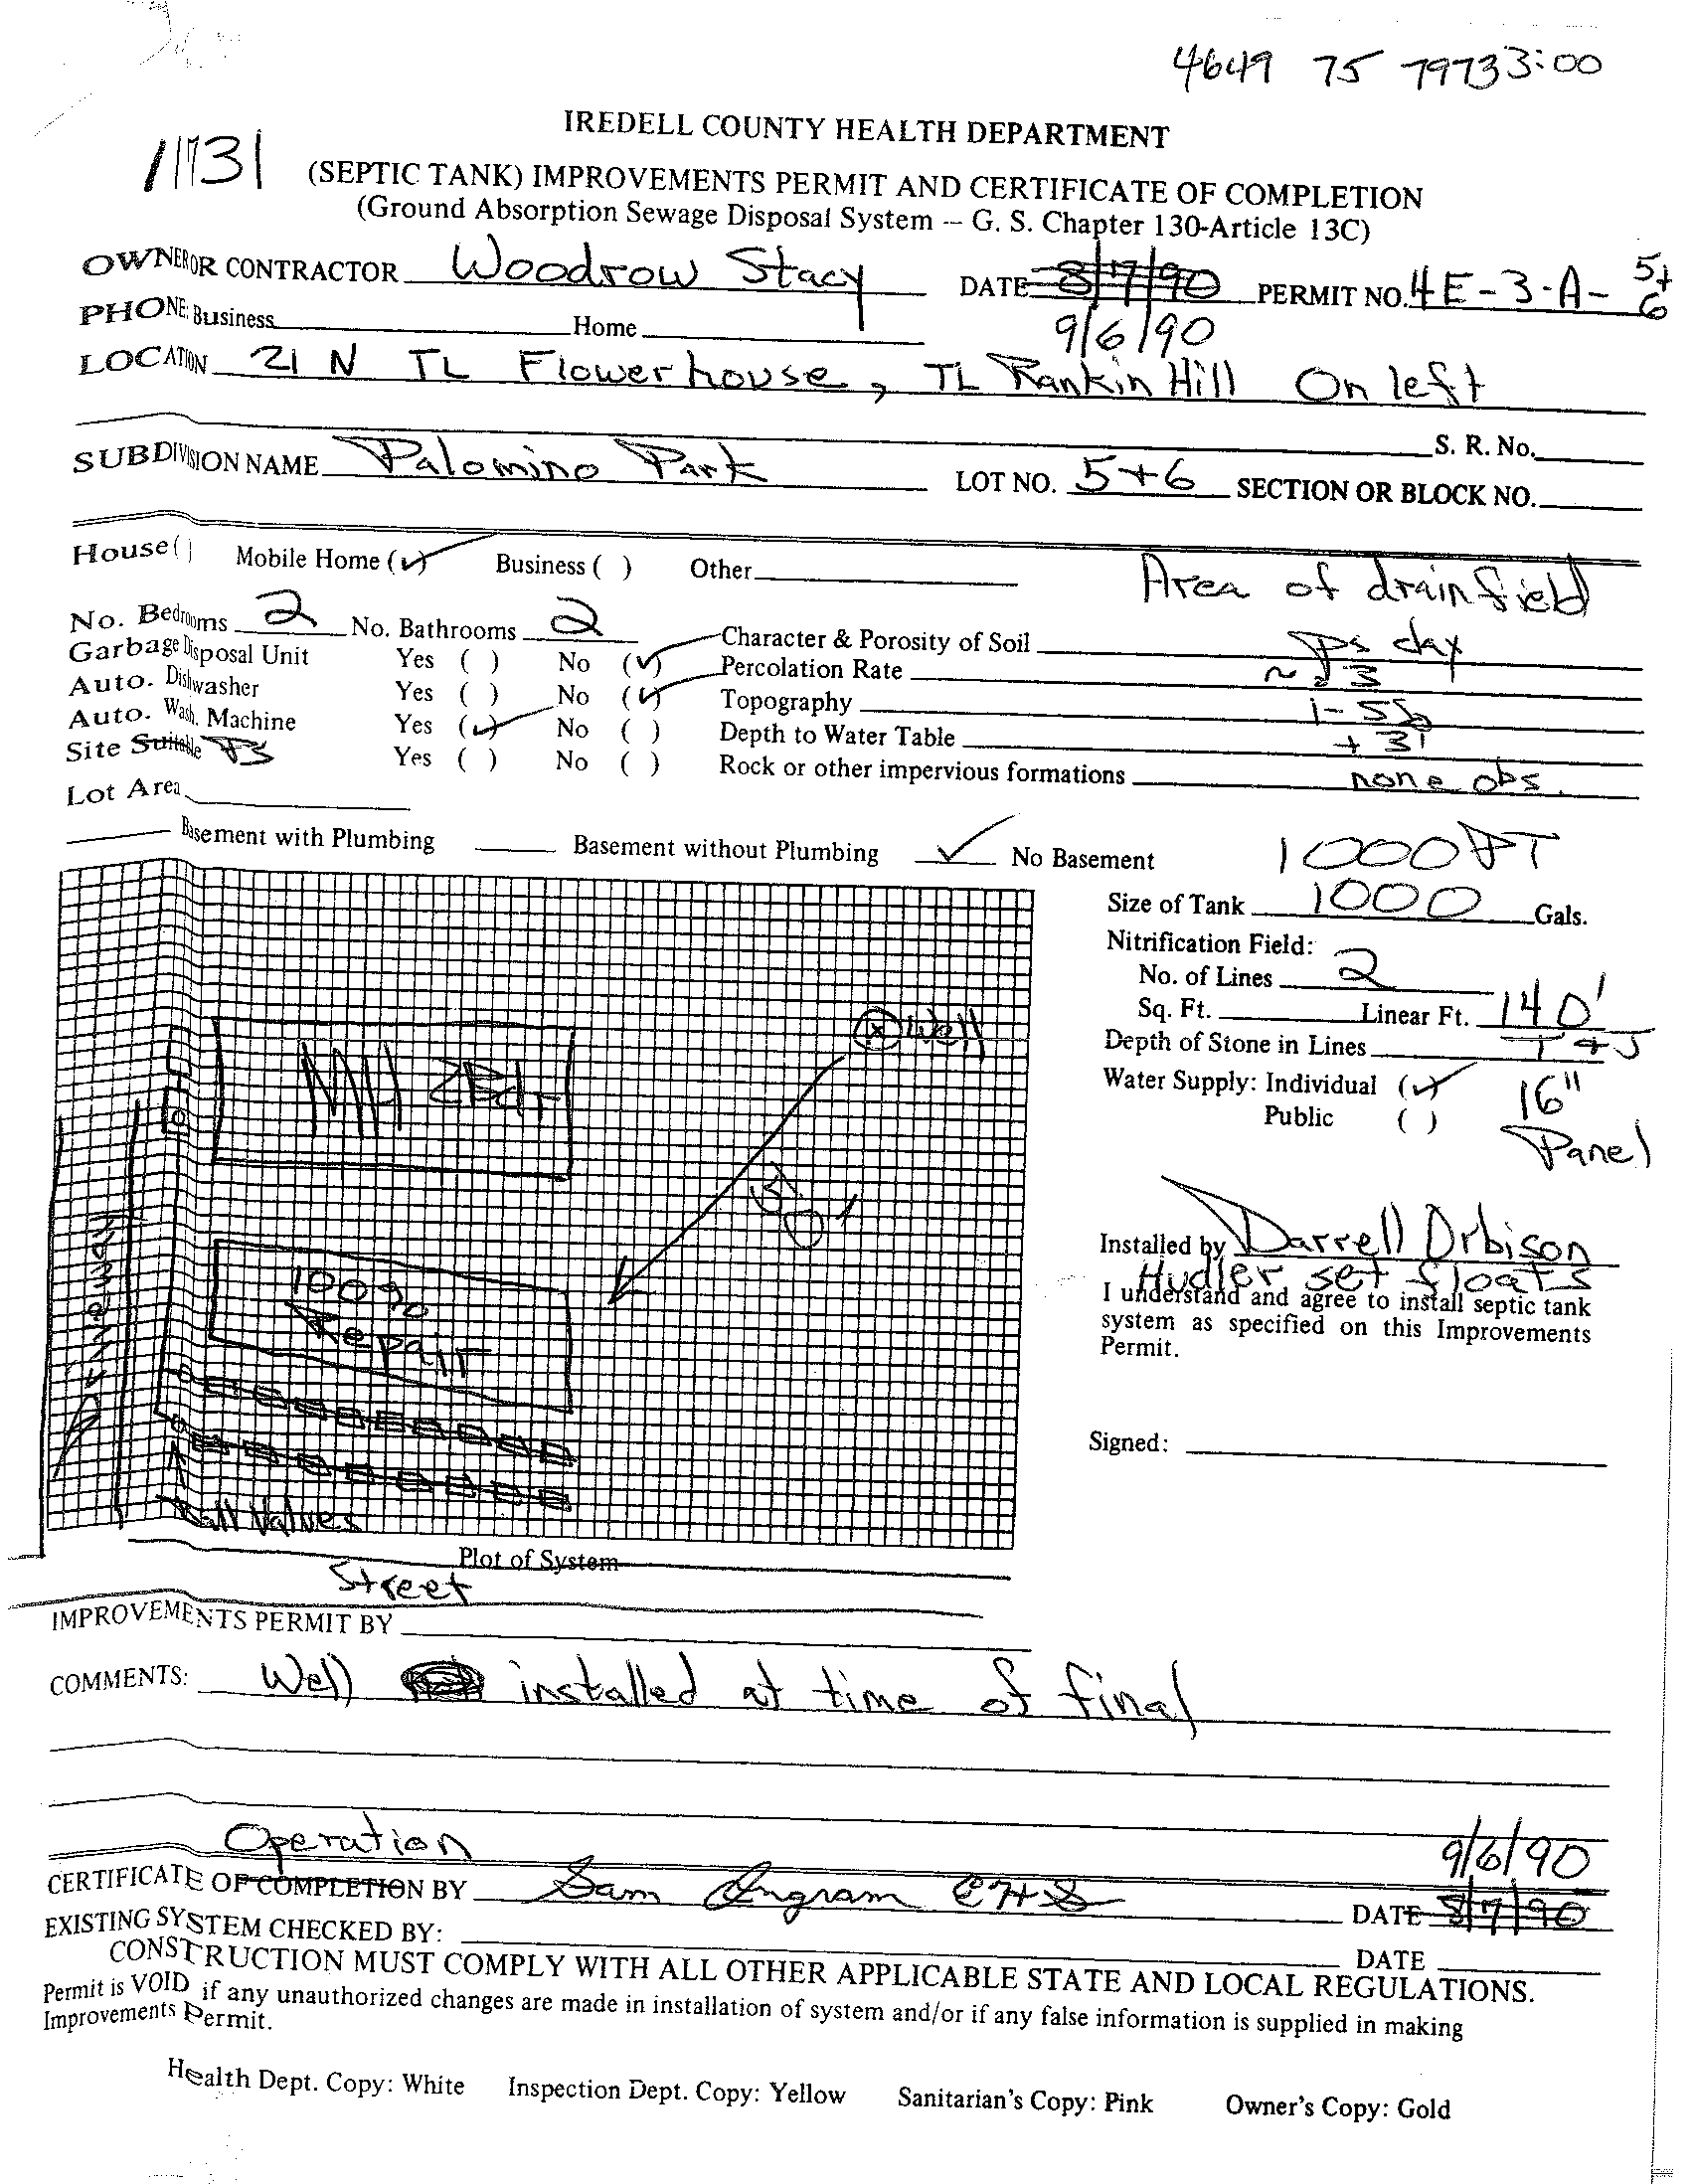 4649 75 7973 3:00
IREDELL COUNTY HEALTH DEPARTMENT
11731 (SEPTIC TANK) IMPROVEMENTS PERMIT AND CERTIFICATE OF COMPLETION
(Ground Absorption Sewage Disposal System -- G. S. Chapter 130-Article 13C)
OWNER OR CONTRACTOR Woodrow Stacy DATE 8/7/90 PERMIT NO. 4E-3-A- 5+6
PHONE: Business Home 9/6/90
LOCATION 21 N TL Flowerhouse, TL Rankin Hill On left
S. R. No.
SUBDIVISION NAME Palomino Park LOT NO. 5+6 SECTION OR BLOCK NO.
House ( ) Mobile Home (✓) Business ( ) Other
Area of drainfield
No. Bedrooms 2 No. Bathrooms 2 Character & Porosity of Soil ps clay
Garbage Disposal Unit Yes ( ) No (✓) Percolation Rate ~ .3
Auto. Dishwasher Yes ( ) No (✓) Topography
Auto. Wash. Machine Yes (✓) No ( ) Depth to Water Table + 3'
Site Suitable PS Yes ( ) No ( ) Rock or other impervious formations none obs.
Lot Area
Basement with Plumbing Basement without Plumbing ✓ No Basement
1000 PT
Size of Tank 1000 Gals.
Nitrification Field:
No. of Lines 2
Sq. Ft. Linear Ft. 140'
Depth of Stone in Lines T & J
Water Supply: Individual (✓) 16"
Public ( ) Panel
Well
MH 2Bdr
50'
Driveway
100%
Repair
Ball Valves
Installed by Darrell Orbison
Hudler set floats
I understand and agree to install septic tank
system as specified on this Improvements
Permit.
Signed:
Plot of System
Street
IMPROVEMENTS PERMIT BY
COMMENTS: Well installed at time of final
Operation 9/6/90
CERTIFICATE OF COMPLETION BY Sam Ingram EHS DATE 8/7/90
EXISTING SYSTEM CHECKED BY: DATE
CONSTRUCTION MUST COMPLY WITH ALL OTHER APPLICABLE STATE AND LOCAL REGULATIONS.
Permit is VOID if any unauthorized changes are made in installation of system and/or if any false information is supplied in making
Improvements Permit.
Health Dept. Copy: White Inspection Dept. Copy: Yellow Sanitarian's Copy: Pink Owner's Copy: Gold